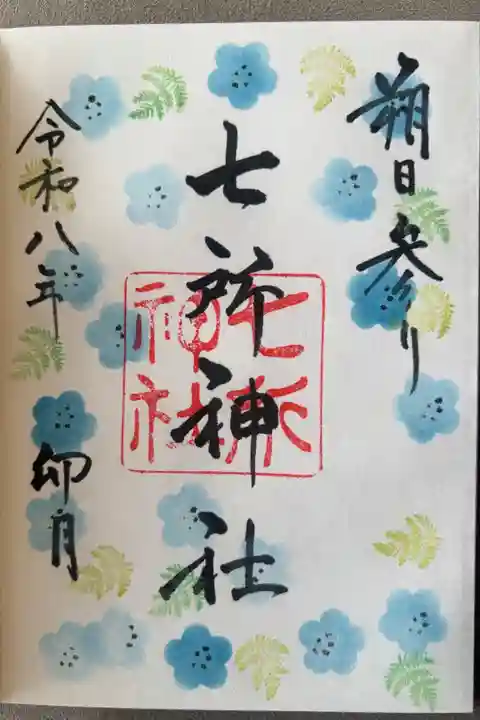 朔日参り
七所神社
七所
神社
令和八年 卯月